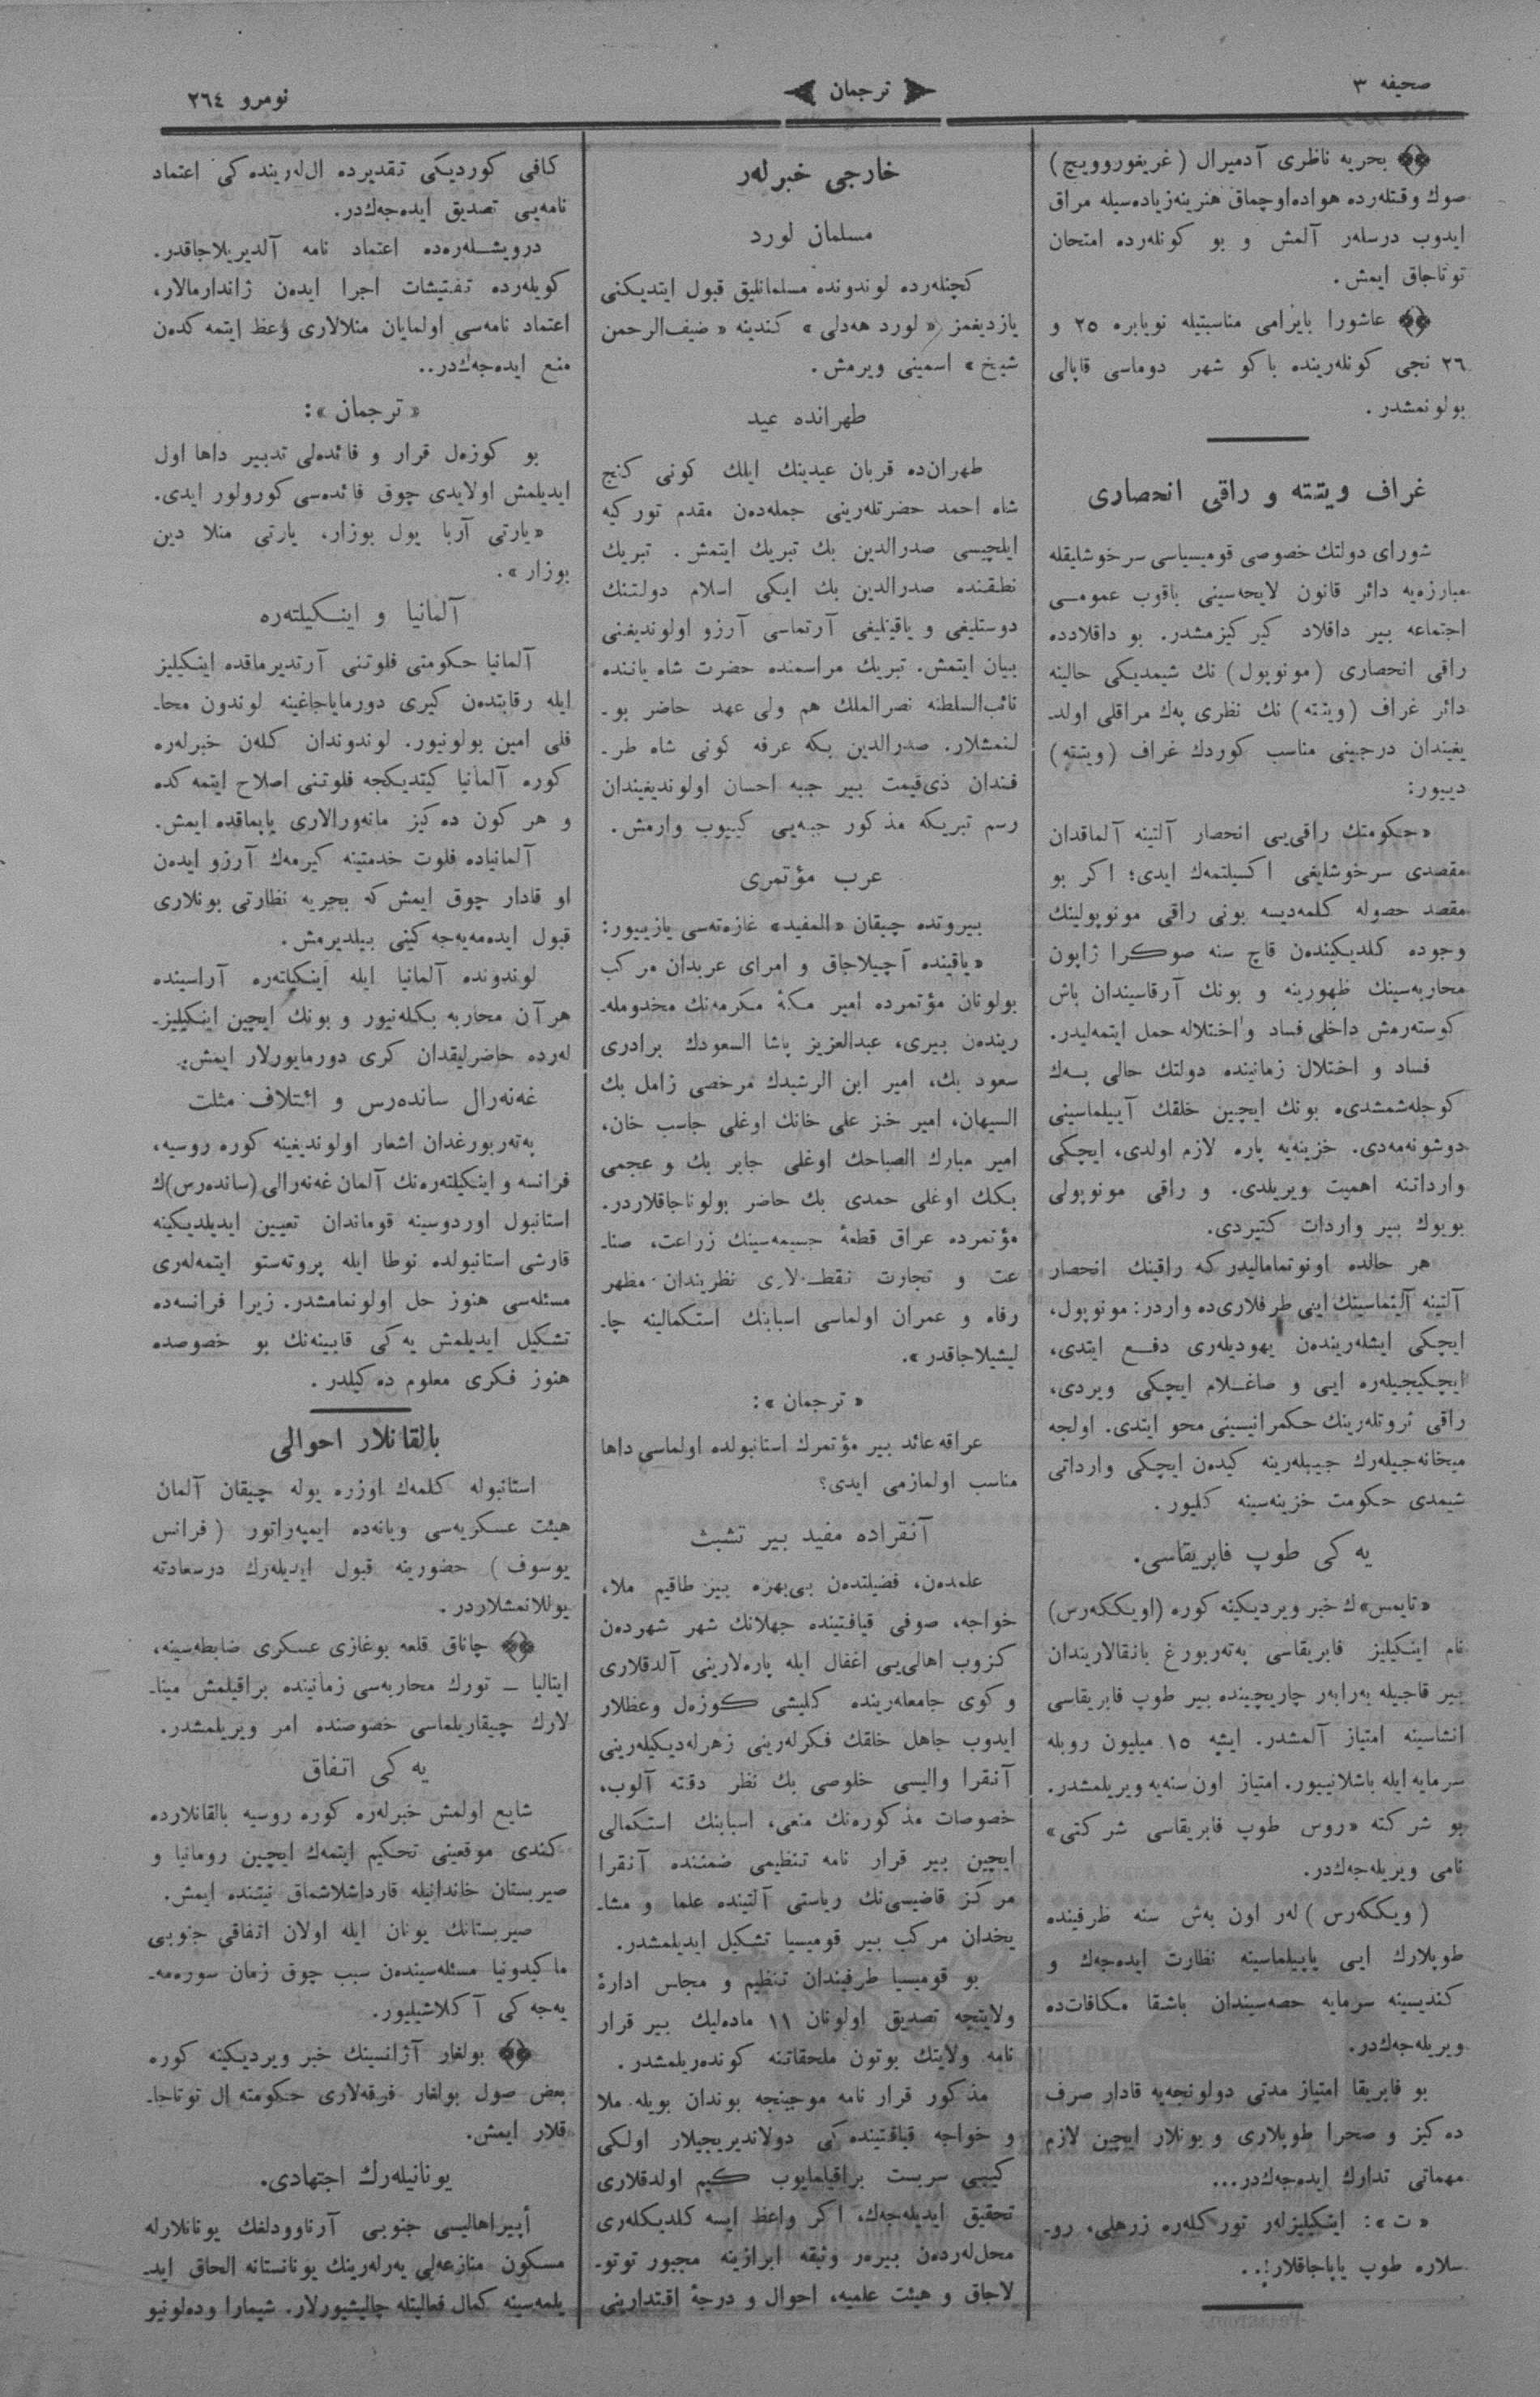 صحیفه ٣
ترجمان
نومرو ٢٦٤
بحریه ناظری آدمیرال (غریغوروویچ)
صوك وقتلەرده هواده اوچماق هنرینه زیاده‌سیله مراق
ایدوب درسلەر آلمش و بو كونلەرده امتحان
توتاجاق ایمش.
عاشورا بایرامی مناسبتیله نویابره ٢٥ و
٢٦ نجی كونلەرینده باكو شهر دوماسی قاپالی
بولونمشدر.
غراف ویتته و راقی انحصاری
شورای دولتك خصوصی قومیسیاسی سرخوشلیقله
مبارزه‌یه دائر قانون لایحه‌سینی یاقوب عمومی
اجتماعه بیر داقلاد كیركیزمشدر. بو داقلادده
راقی انحصاری (مونوپول) نك شیمدیكی حالینه
دائر غراف (ویتته) نك نظری پەك مراقلی اولد-
یغیندان درجینی مناسب كوردك غراف (ویتته)
دییور:
«حكومتك راقی‌یی انحصار آلتینه آلماقدان
مقصدی سرخوشلیغی اكسیلتمەك ایدی؛ اكر بو
مقصد حصوله كلمه‌دیسه بونی راقی مونوپولینك
وجوده كلدیكیندەن قاچ سنه صوڭرا ژاپون
محاربه‌سینك ظهورینه و بونك آرقاسیندان باش
كوسته‌رمش داخلی فساد و اختلاله حمل ایتمه‌لیدر.
فساد و اختلال زمانینده دولتك حالی پەك
كوجله‌شمشدی. بونك ایچین خلقك آییلماسینی
دوشونه‌مه‌دی. خزینه‌یه پاره لازم اولدی، ایچكی
وارداتنه اهمیت ویریلدی. و راقی مونوپولی
بویوك بیر واردات كتیردی.
هر حالده اونوتمامالیدر كه راقینك انحصار
آلتینه آلینماسینك ایی طرفلاری‌ده واردر: مونوپول،
ایچكی ایشلەریندەن یهودیلەری دفع ایتدی،
ایچكیجیلەره ایی و صاغلام ایچكی ویردی،
راقی ثروتلەرینك حكمرانیسینی محو ایتدی. اولجه
میخانه‌جیلەرك جیبلەرینه كیدەن ایچكی وارداتی
شیمدی حكومت خزینه‌سینه كلیور.
یەكی طوپ فابریقاسی.
«تایمس»ك خبر ویردیكینه كوره (اویككەرس)
نام اینكیلیز فابریقاسی پەتەربورغ بانقالاریندان
بیر قاچیله بەرابەر چاریچینده بیر طوپ فابریقاسی
انشاسینه امتیاز آلمشدر. ایشه ١٥ میلیون روبله
سرمایه ایله باشلانییور. امتیاز اون سنه‌یه ویریلمشدر.
بو شركته «روس طوپ فابریقاسی شركتی»
نامی ویریله‌جەك‌در.
(ویككەرس) لەر اون بەش سنه ظرفینده
طوپلارك ایی یاپیلماسینه نظارت ایده‌جەك و
كندیسینه سرمایه حصه‌سیندان باشقا مكافات‌ده
ویریله‌جەك‌در.
بو فابریقا امتیاز مدتی دولونجه‌یه قادار صرف
دەكیز و صحرا طوپلاری و بونلار ایچین لازم
مهماتی تدارك ایده‌جەك‌در...
«ت»: اینكیلیزلەر توركلەره زرهلی، رو-
سلاره طوپ یاپاجاقلار!..
خارجی خبرلەر
مسلمان لورد
كچنلەرده لوندونده مسلمانلیق قبول ایتدیكنی
یازدیغمز «لورد هەدلی» كندینه «ضیف‌الرحمن
شیخ» اسمینی ویرمش.
طهرانده عید
طهران‌ده قربان عیدینك ایلك كونی كنج
شاه احمد حضرتلەرینی جمله‌دەن مقدم توركیه
ایلچیسی صدرالدین بك تبریك ایتمش. تبریك
نطقنده صدرالدین بك ایكی اسلام دولتنك
دوستلیغی و یاقینلیغی آرتماسی آرزو اولوندیغنی
بیان ایتمش. تبریك مراسمنده حضرت شاه یاننده
نائب‌السلطنه نصرالملك هم ولی عهد حاضر بو-
لنمشلار. صدرالدین بكه عرفه كونی شاه طر-
فندان ذی‌قیمت بیر جبه احسان اولوندیغیندان
رسم تبریكه مذكور جبه‌یی كییوب وارمش.
عرب مؤتمری
بیروتده چیقان «المفید» غازەتەسی یازییور:
«یاقینده آچیلاجاق و امرای عربدان مركب
بولونان مؤتمرده امیر مكهٔ مكرمه‌نك مخدومله-
ریندەن بیری، عبدالعزیز پاشا السعودك برادری
سعود بك، امیر ابن الرشیدك مرخصی زامل بك
السبهان، امیر خز علی خانك اوغلی جاسب خان،
امیر مبارك الصباحك اوغلی جابر بك و عجمی
بكك اوغلی حمدی بك حاضر بولوناجاقلاردر.
مؤتمرده عراق قطعهٔ جسیمه‌سینك زراعت، صنا-
عت و تجارت نقطه‌لاری نظریندان مظهر
رفاه و عمران اولماسی اسبابنك استكمالینه چا-
لیشیلاجاقدر».
«ترجمان»:
عراقه عائد بیر مؤتمرك استانبولده اولماسی داها
مناسب اولمازمی ایدی؟
آنقراده مفید بیر تشبث
علمدەن، فضیلتدەن بی‌بهره بیر طاقیم ملا،
خواجه، صوفی قیافتینده جهلانك شهر شهردەن
كزوب اهالی‌یی اغفال ایله پاره‌لارینی آلدقلاری
و كوی جامعلەرینده كلیشی كوزەل وعظلار
ایدوب جاهل خلقك فكرلەرینی زهرله‌دیكیلەرینی
آنقرا والیسی خلوصی بك نظر دقته آلوب،
خصوصات مذكوره‌نك منعی، اسبابنك استكمالی
ایچین بیر قرار نامه تنظیمی ضمننده آنقرا
مركز قاضیسی‌نك ریاستی آلتینده علما و مشا-
یخدان مركب بیر قومیسیا تشكیل ایدیلمشدر.
بو قومیسیا طرفیندان تنظیم و مجلس ادارهٔ
ولایتجه تصدیق اولونان ١١ ماده‌لیك بیر قرار
نامه ولایتك بوتون ملحقاتنه كونده‌ریلمشدر.
مذكور قرار نامه موجبنجه بوندان بویله ملا
و خواجه قیافتینده‌كی دولاندیریجیلار اولكی
كیبی سربست براقیلمایوب كیم اولدقلاری
تحقیق ایدیله‌جەك، اكر واعظ ایسه كلدیكلەری
محل‌لەردەن بیرەر وثیقه ابرازینه مجبور توتو-
لاجاق و هیئت علمیه، احوال و درجهٔ اقتدارینی
كافی كوردیكی تقدیرده ال‌لەرینده‌كی اعتماد
نامه‌یی تصدیق ایده‌جەك‌در.
درویشلەره‌ده اعتماد نامه آلدیریلاجاقدر.
كویلەرده تفتیشات اجرا ایدەن ژاندارمالار،
اعتماد نامه‌سی اولمایان منلالاری وعظ ایتمه‌كدەن
منع ایده‌جەك‌در..
«ترجمان»:
بو كوزەل قرار و فائده‌لی تدبیر داها اول
ایدیلمش اولایدی چوق فائده‌سی كورولور ایدی.
«یارتی آربا یول بوزار، یارتی منلا دین
بوزار».
آلمانیا و اینكیلتەره
آلمانیا حكومتی فلوتنی آرتدیرماقده اینكیلیز
ایله رقابتدەن كیری دورمایاجاغینه لوندون محا-
فلی امین بولونیور. لوندوندان كلەن خبرلەره
كوره آلمانیا كیتدیكجه فلوتنی اصلاح ایتمه‌كده
و هر كون دەكیز مانەورالاری یاپماقده ایمش.
آلمانیاده فلوت خدمتینه كیرمەك آرزو ایدەن
او قادار چوق ایمش كه بحریه نظارتی بونلاری
قبول ایده‌مه‌یه‌جەكینی بیلدیرمش.
لوندونده آلمانیا ایله اینكیلتەره آراسینده
هر آن محاربه بكله‌نیور و بونك ایچین اینكیلیز-
لەرده حاضرلیقدان كری دورمایورلار ایمش.
غەنەرال ساندەرس و ائتلاف مثلث
پەتەربورغدان اشعار اولوندیغینه كوره روسیه،
فرانسه و اینكیلتەره‌نك آلمان غەنەرالی (ساندەرس)ك
استانبول اوردوسینه قوماندان تعیین ایدیلدیكینه
قارشی استانبولده نوطا ایله پروتەستو ایتمه‌لەری
مسئله‌سی هنوز حل اولونمامشدر. زیرا فرانسه‌ده
تشكیل ایدیلمش یەكی قابینه‌نك بو خصوصده
هنوز فكری معلوم دەكیلدر.
بالقانلار احوالی
استانبوله كلمەك اوزره یوله چیقان آلمان
هیئت عسكریه‌سی ویانه‌ده ایمپەراتور (فرانس
یوسوف) حضورینه قبول ایدیلەرك درسعادته
یوللانمشلاردر.
چاناق قلعه بوغازی عسكری ضابطه‌سینه،
ایتالیا ــ تورك محاربه‌سی زمانینده براقیلمش مینا-
لارك چیقاریلماسی خصوصنده امر ویریلمشدر.
یەكی اتفاق
شایع اولمش خبرلەره كوره روسیه بالقانلارده
كندی موقعینی تحكیم ایتمەك ایچین رومانیا و
صیربستان خاندانیله قارداشلاشماق نیتنده ایمش.
صیربستانك یونان ایله اولان اتفاقی جنوبی
ماكیدونیا مسئله‌سیندەن سبب چوق زمان سورەمه-
یه‌جەكی آكلاشیلیور.
بولغار آژانسینك خبر ویردیكینه كوره
بعض صول بولغار فرقه‌لاری حكومته ال توتاجا-
قلار ایمش.
یونانیلەرك اجتهادی.
أپیر اهالیسی جنوبی آرناوودلغك یونانلارله
مسكون منازعه‌لی یەرلەرینك یونانستانه الحاق اید-
یلمه‌سینه كمال فعالیتله چالیشیورلار. شیمارا و دەلونیو